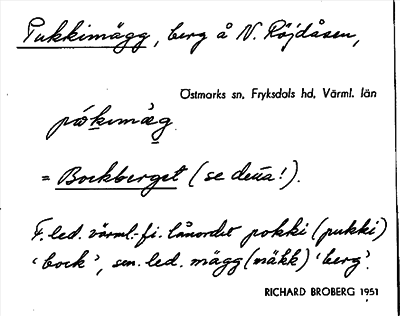 Pukkimägg, berg å N. Röjdåsen,
Östmarks sn, Fryksdals hd, Värml. län
pók̲ɩmàg̲
= Bockberget (se denna!).
F. led. värml.-fi. lånordet pokki (pukki)
'bock', sen. led. mägg (mäkk) 'berg'.
RICHARD BROBERG 1951